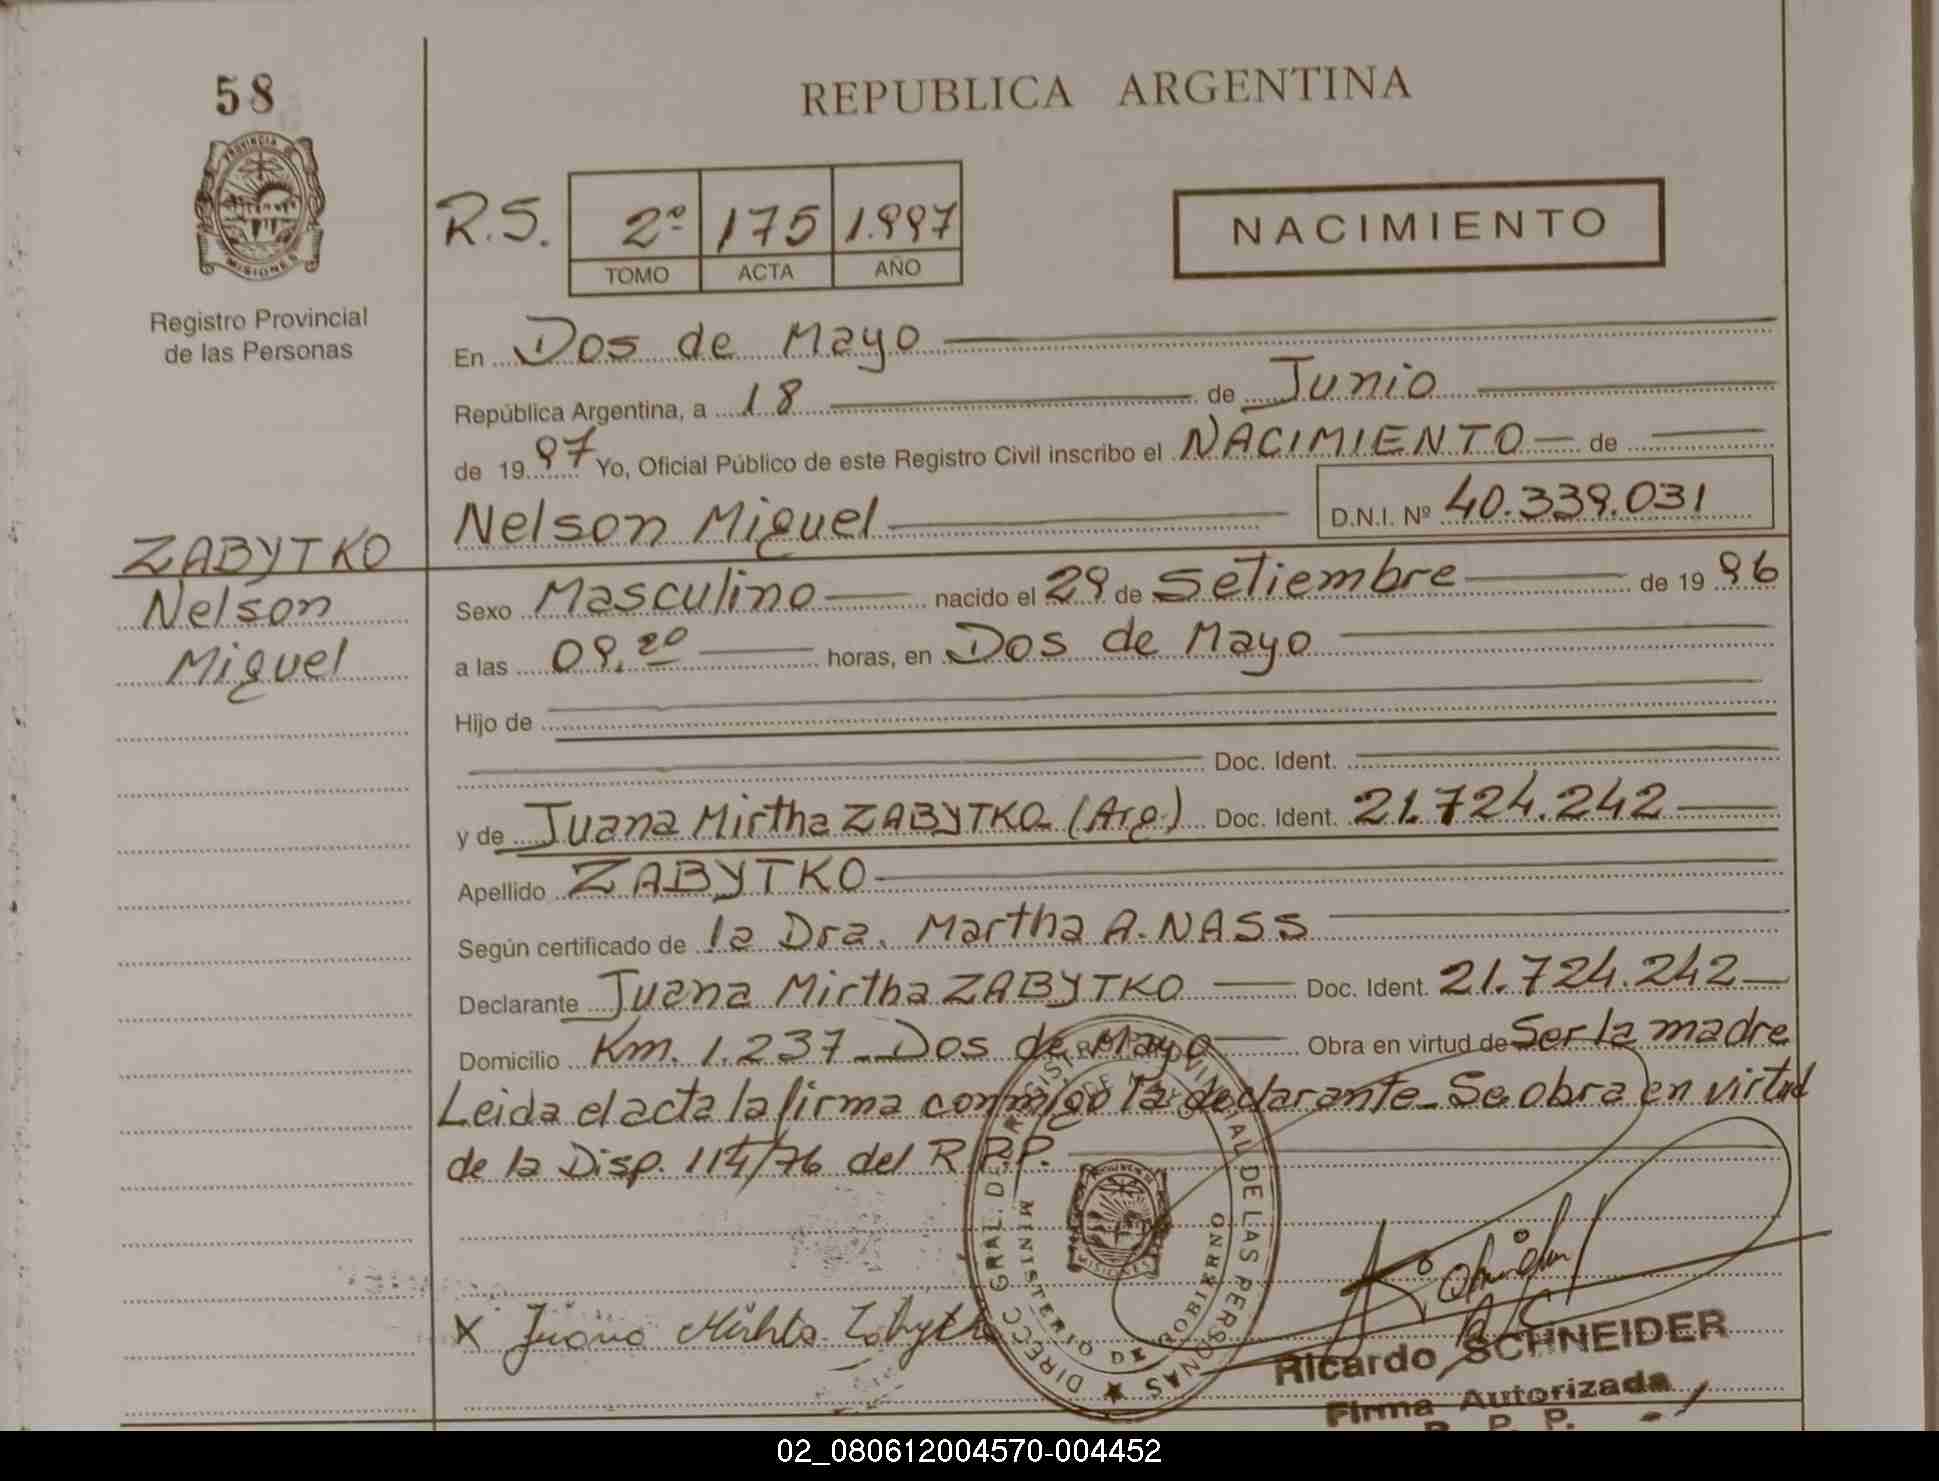 58
REPUBLICA ARGENTINA
PROVINCIA DE
MISIONES
Registro Provincial
de las Personas
R.S. 2º 175 1.997
TOMO ACTA AÑO
NACIMIENTO
En Dos de Mayo
República Argentina, a 18 de Junio
de 1997 Yo, Oficial Público de este Registro Civil inscribo el NACIMIENTO de
Nelson Miguel D.N.I. Nº 40.339.031
ZABYTKO
Nelson
Miguel
Sexo Masculino nacido el 29 de Setiembre de 1996
a las 09,20 horas, en Dos de Mayo
Hijo de
Doc. Ident.
y de Juana Mirtha ZABYTKO (Arg.) Doc. Ident. 21.724.242
Apellido ZABYTKO
Según certificado de la Dra. Martha A. NASS
Declarante Juana Mirtha ZABYTKO Doc. Ident. 21.724.242
Domicilio Km. 1.237 - Dos de Mayo Obra en virtud de Ser la madre
Leida el acta la firma conmigo la declarante - Se obra en virtud
de la Disp. 114/76 del R.P.P.
DIRECC. GRAL. DE REGISTRO PROVINCIAL DE LAS PERSONAS
MINISTERIO DE GOBIERNO
MISIONES
X Juana Mirhta Zabytko
Ricardo SCHNEIDER
Firma Autorizada
R. P. P.
02_080612004570-004452